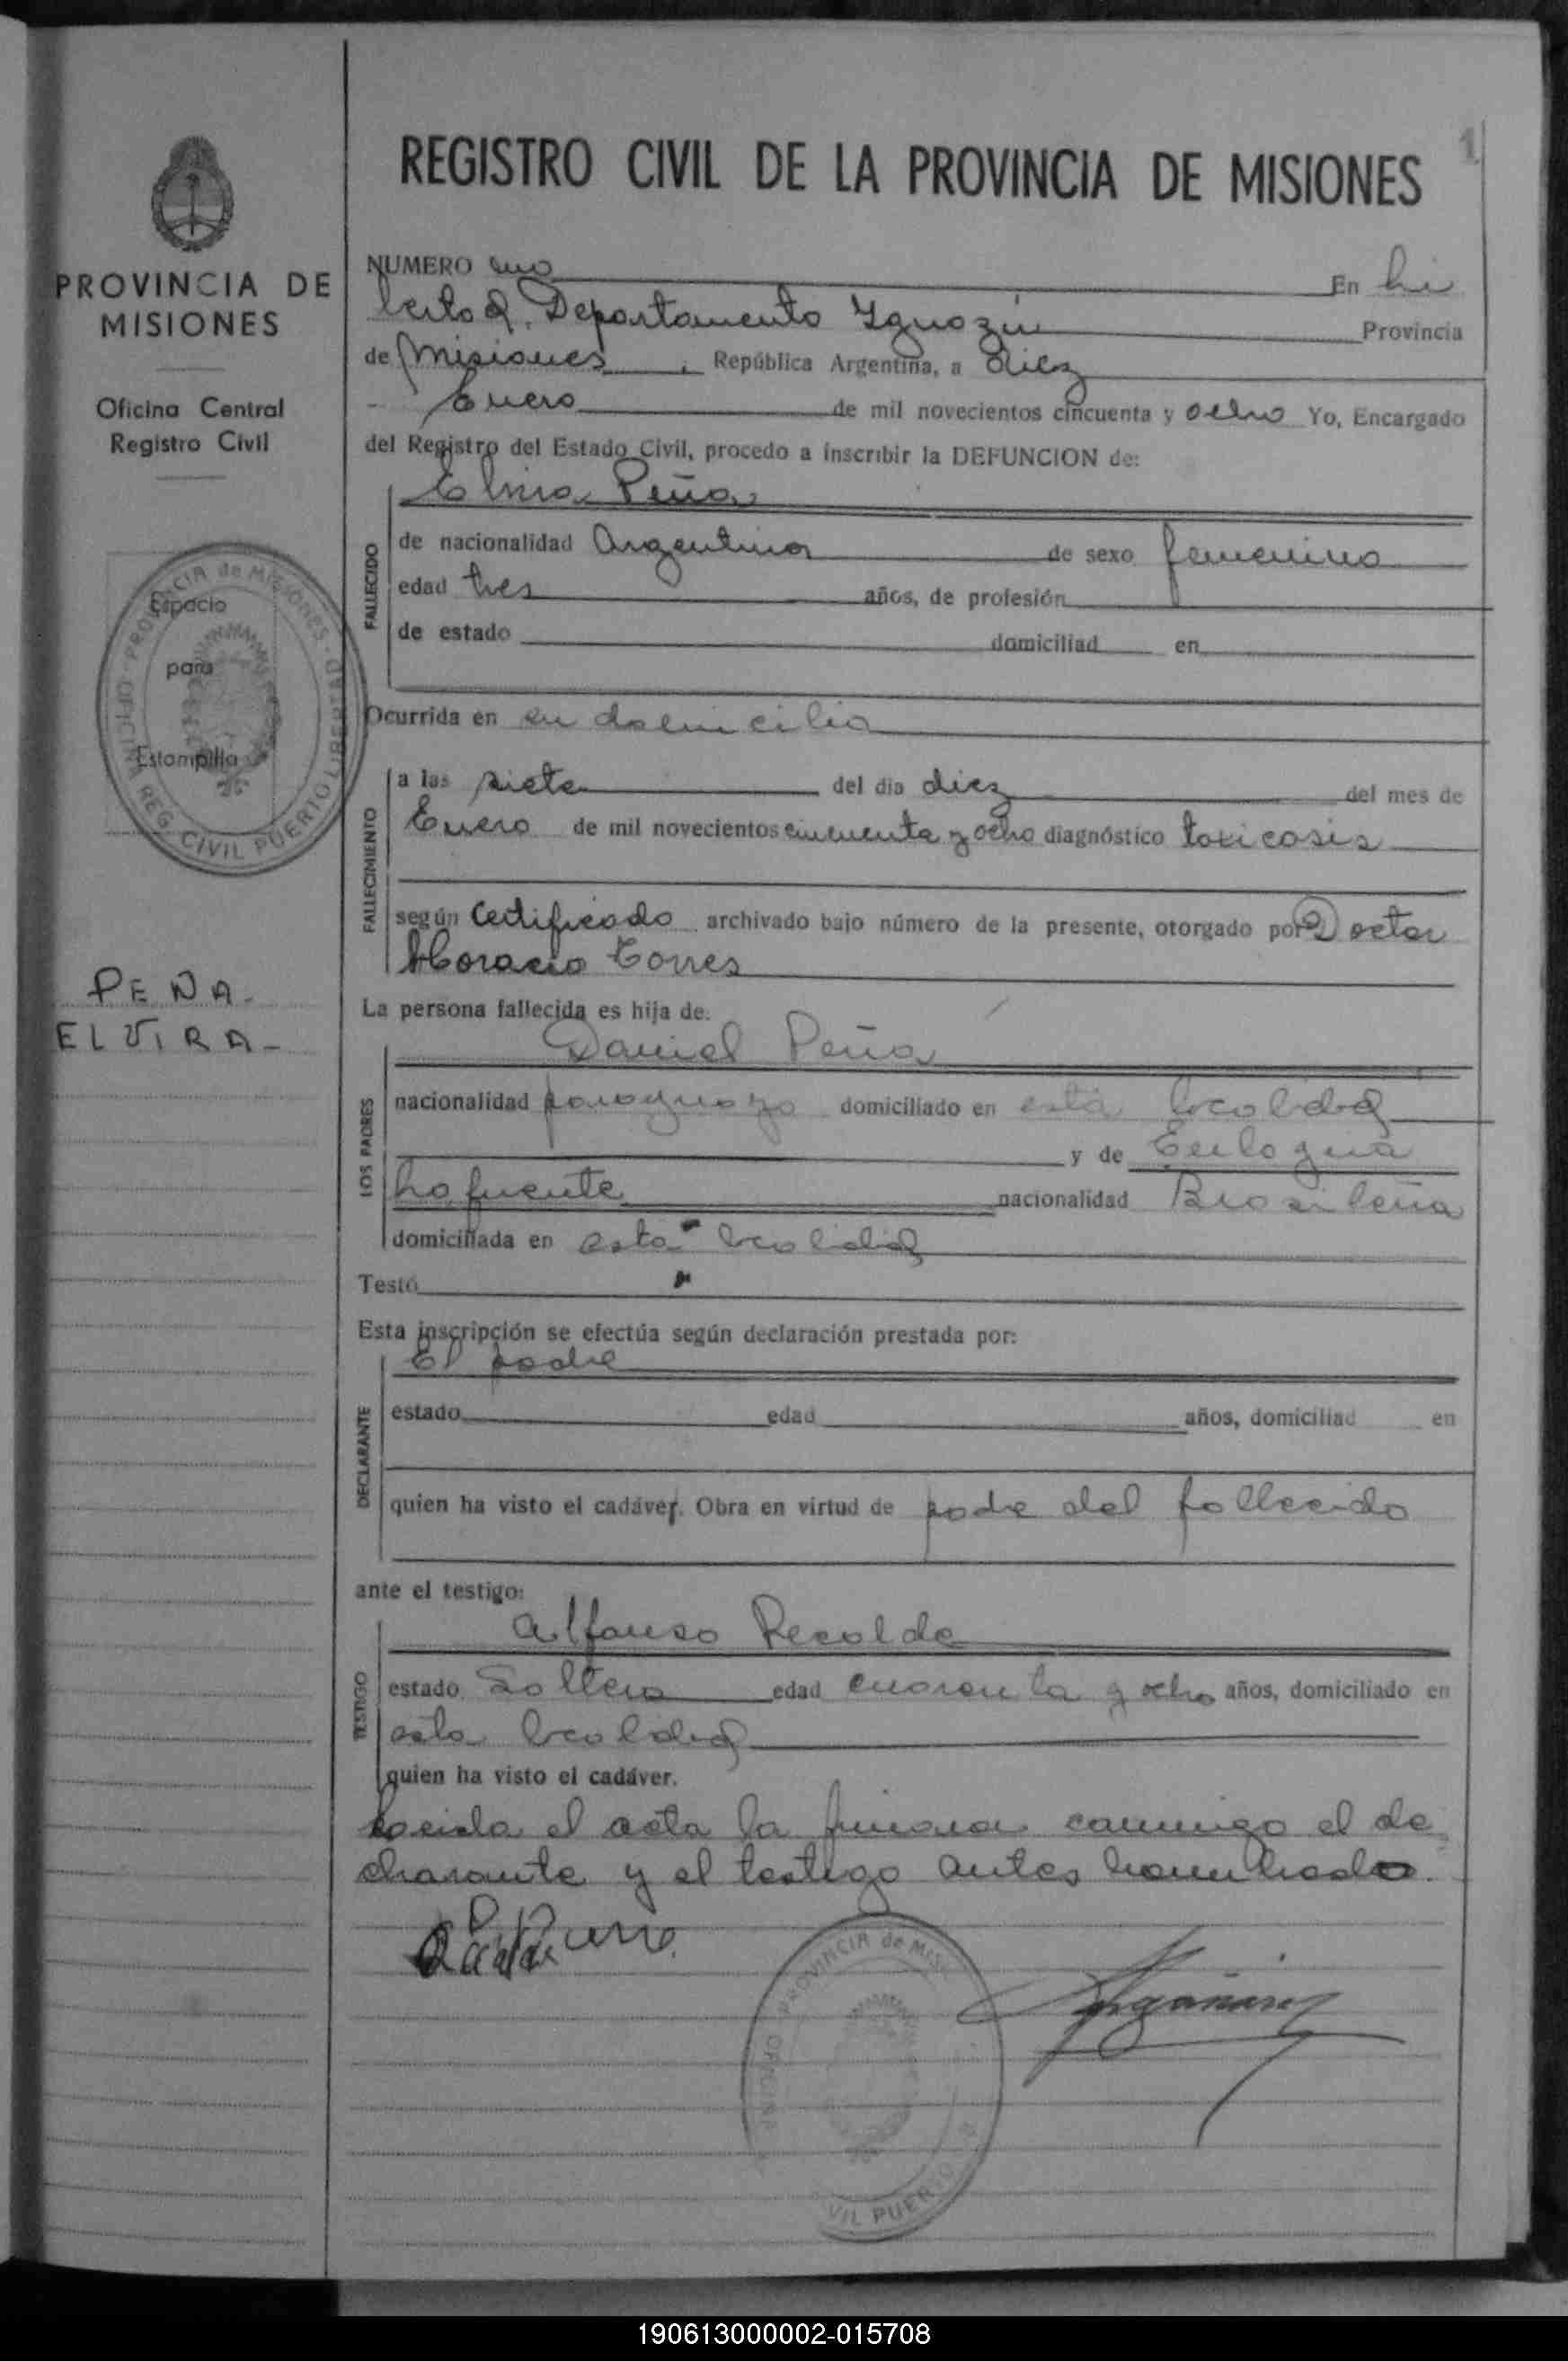 1
REGISTRO CIVIL DE LA PROVINCIA DE MISIONES
PROVINCIA DE
MISIONES
Oficina Central
Registro Civil
Espacio
para
Estampilla
PROVINCIA de MISIONES - PUERTO LIBERTAD
OFICINA REG. CIVIL
PEÑA-
ELVIRA-
NUMERO uno En Li
bertad, Departamento Yguazú Provincia
de Misiones, República Argentina, a diez
- Enero de mil novecientos cincuenta y ocho Yo, Encargado
del Registro del Estado Civil, procedo a inscribir la DEFUNCION de:
Elvira Peña
FALLECIDO
de nacionalidad Argentina de sexo femenino
edad tres años, de profesión
de estado domiciliad en
Ocurrida en su domicilio
FALLECIMIENTO
a las siete del día diez del mes de
Enero de mil novecientos cincuenta y ocho diagnóstico toxicosis
según Certificado archivado bajo número de la presente, otorgado por Doctor
Horacio Torres
La persona fallecida es hija de:
Daniel Peña
LOS PADRES
nacionalidad paraguayo domiciliado en esta localidad
y de Eulogia
Lafuente nacionalidad Brasileña
domiciliada en esta localidad
Testó
Esta inscripción se efectúa según declaración prestada por:
El padre
DECLARANTE
estado edad años, domiciliad en
quien ha visto el cadáver. Obra en virtud de padre del fallecido
ante el testigo:
Alfonso Recalde
TESTIGO
estado Soltero edad cuarenta y ocho años, domiciliado en
esta localidad
quien ha visto el cadáver.
Leida el acta la firman conmigo el de
clarante y el testigo antes nombrado.
PROVINCIA de MIS
VIL PUERTO
190613000002-015708